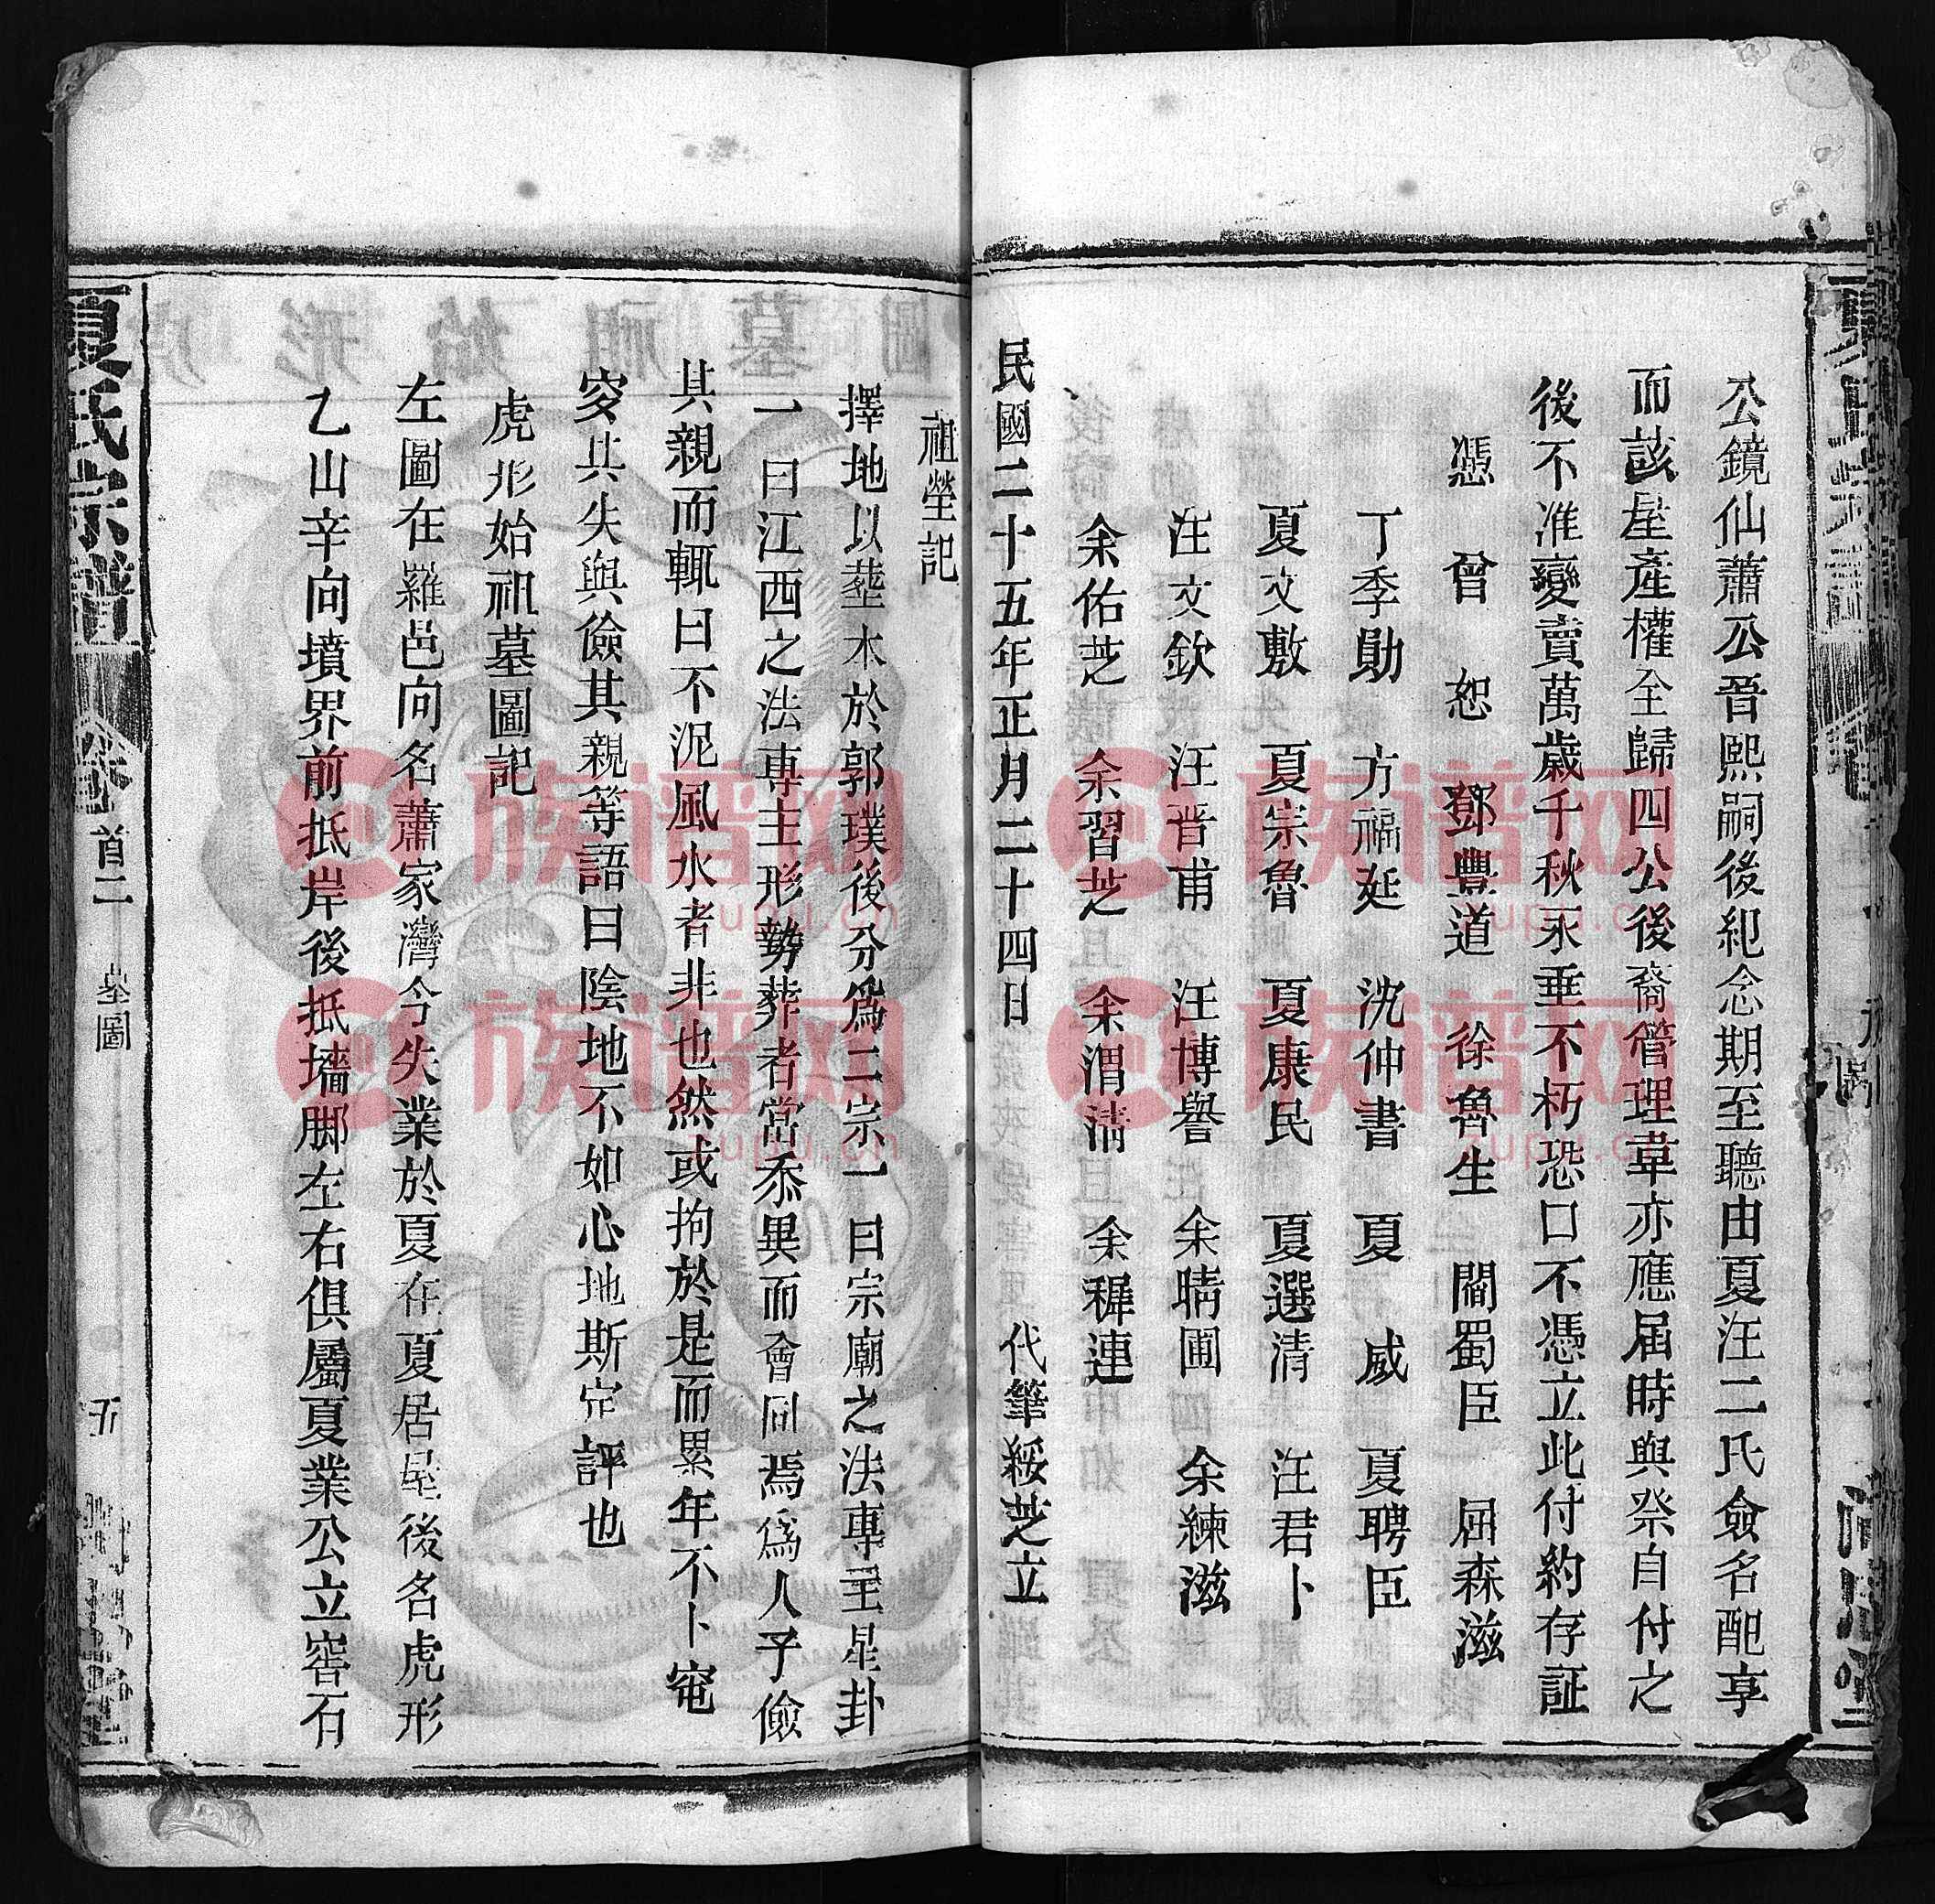 公鏡仙蕭公晉熙嗣後紀念期至聽由夏汪二氏僉名配享
而該屋產權全歸四公後裔管理韋亦應届時與祭自付之
後不准變賣萬歲千秋永垂不朽恐口不憑立此付約存証
憑 曾恕 鄧豐道 徐魯生 閻蜀臣 屈森滋
丁季勛 方福延 沈仲書 夏威 夏聘臣
夏文敷 夏崇魯 夏康民 夏選清 汪君卜
汪文欽 汪晋甫 汪博譽 余晴圃 余練滋
余佑芝 余習芝 余渭清 余穉連
民國二十五年正月二十四日 代筆綏芝立
祖塋記
擇地以塟本於郭璞後分爲二宗一曰宗廟之法專主星卦
一曰江西之法專主形勢葬者當叅異而會同焉爲人子儉
其親而輒曰不泥風水者非也然或拘於是而累年不卜窀
穸其失與儉其親等語曰陰地不如心地斯定評也
虎形始祖墓圖記
左圖在羅邑向名蕭家灣今失業於夏在夏居屋後名虎形
乙山辛向墳界前抵岸後抵墻脚左右俱屬夏業公立窖石
夏氏宗譜 卷首二 墓圖 五
族谱网
zupu.cn
族谱网
zupu.cn
族谱网
zupu.cn
族谱网
zupu.cn